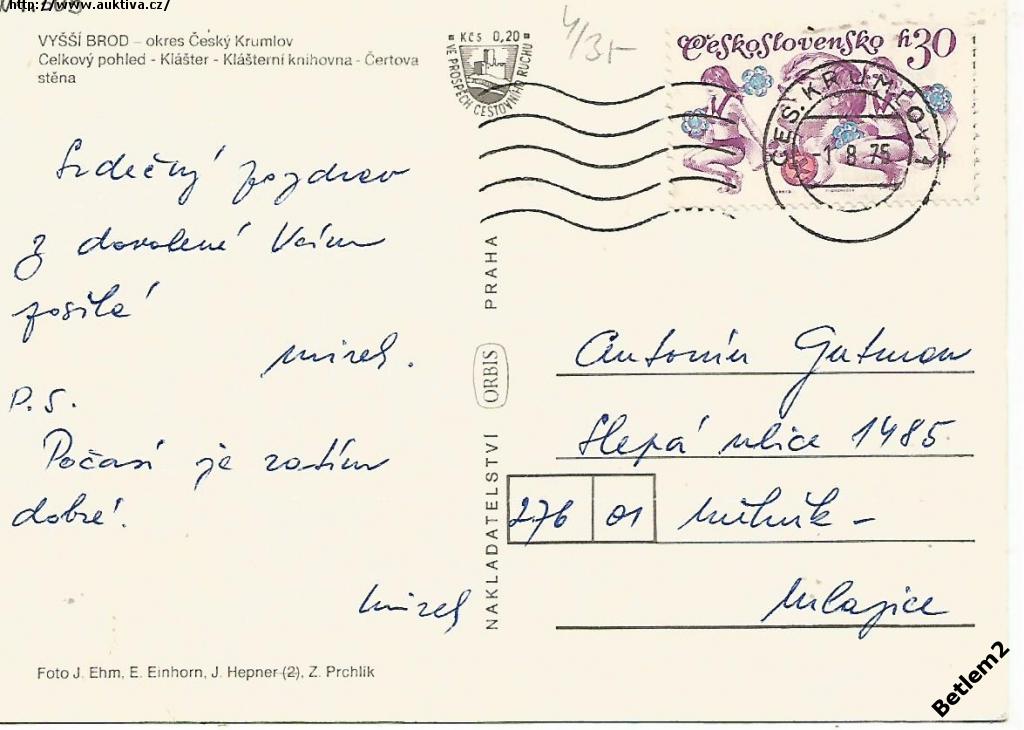 http://www.auktiva.cz/
VYŠŠÍ BROD – okres Český Krumlov
Celkový pohled - Klášter - Klášterní knihovna - Čertova
stěna
Kčs 0,20
VE PROSPĚCH CESTOVNÍHO RUCHU
4/3,-
Československo h30
ČES. KRUMLOV 1
1 8 75
Srdečný pozdrav
z dovolené Vám
posílá
Mirek.
P.S.
Počasí je zatím
dobré!
Mirek
NAKLADATELSTVÍ ORBIS PRAHA
Antonín Gutman
Slepá ulice 1485
276 01 Mělník -
Mlazice
Foto J. Ehm, E. Einhorn, J. Hepner (2), Z. Prchlík
Betlem2